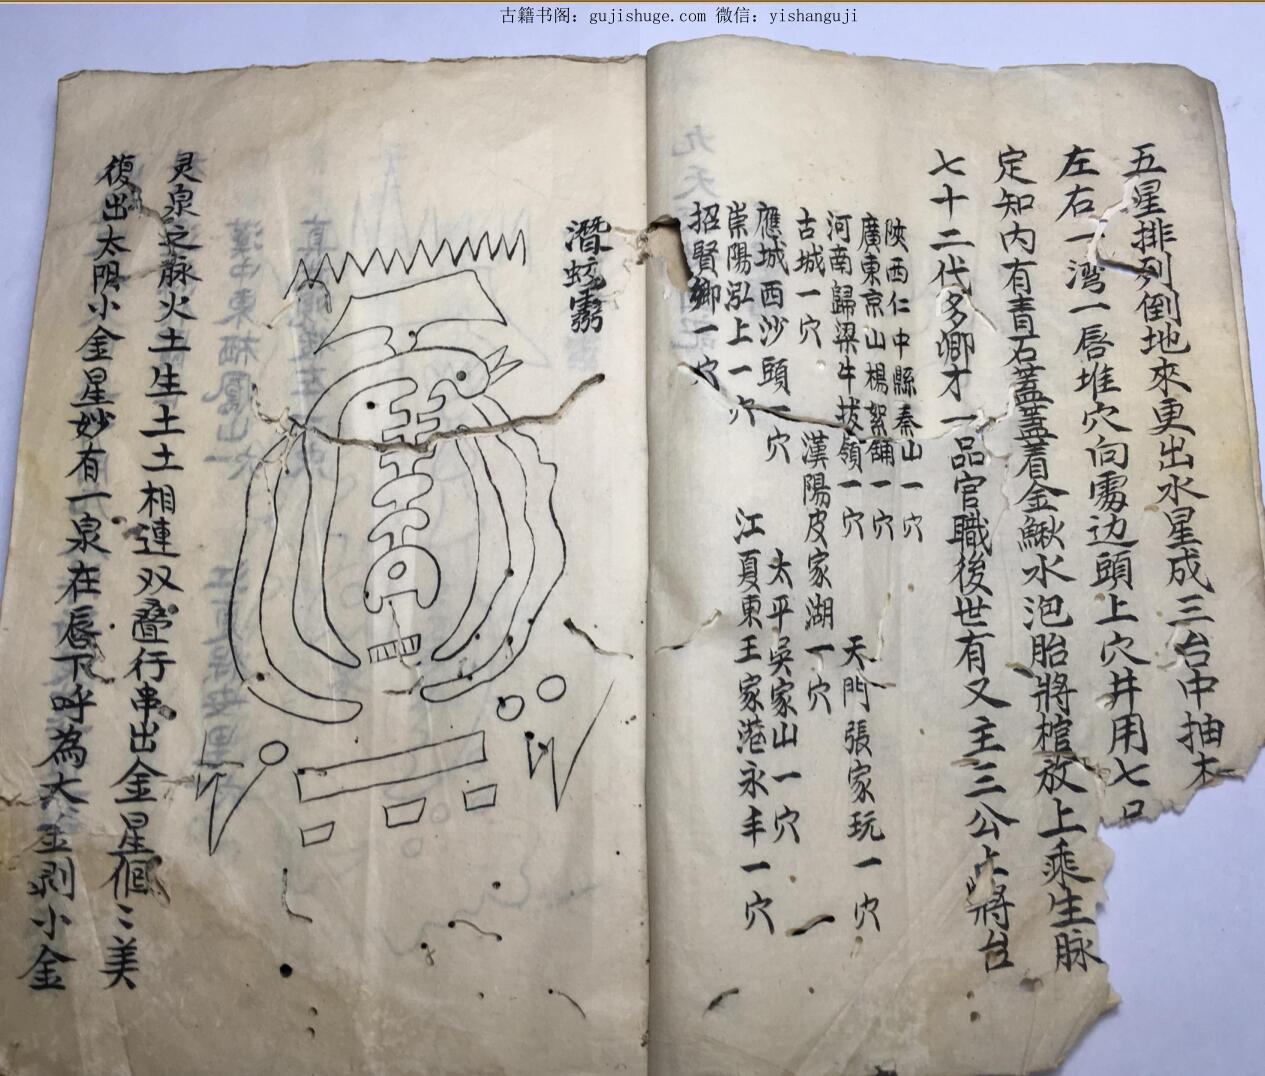 古籍书阁：gujishuge.com 微信：yishanguji
五星排列倒地來更出水星成三台中抽木
左右一湾一唇堆穴向雺边頭上穴井用七
定知内有青石蓋蓋着金鰍水泡胎將棺放上乘生脉
七十二代多卿才一品官職後世有又主三公上將台
陝西仁中縣秦山一穴
廣東京山楊絮鋪一穴
河南歸梁牛坡嶺一穴
天門張家玩一穴
古城一穴
漢陽皮家湖一穴
應城西沙頭一穴
太平吳家山一穴
崇陽泓上一穴
江夏東王家港永丰一穴
招賢鄉一穴
潛蛟雺
灵泉之脉火土生土土相連双叠行串出金星個〻美
復出太陽小金星妙有一泉在唇下呼為大金剥小金